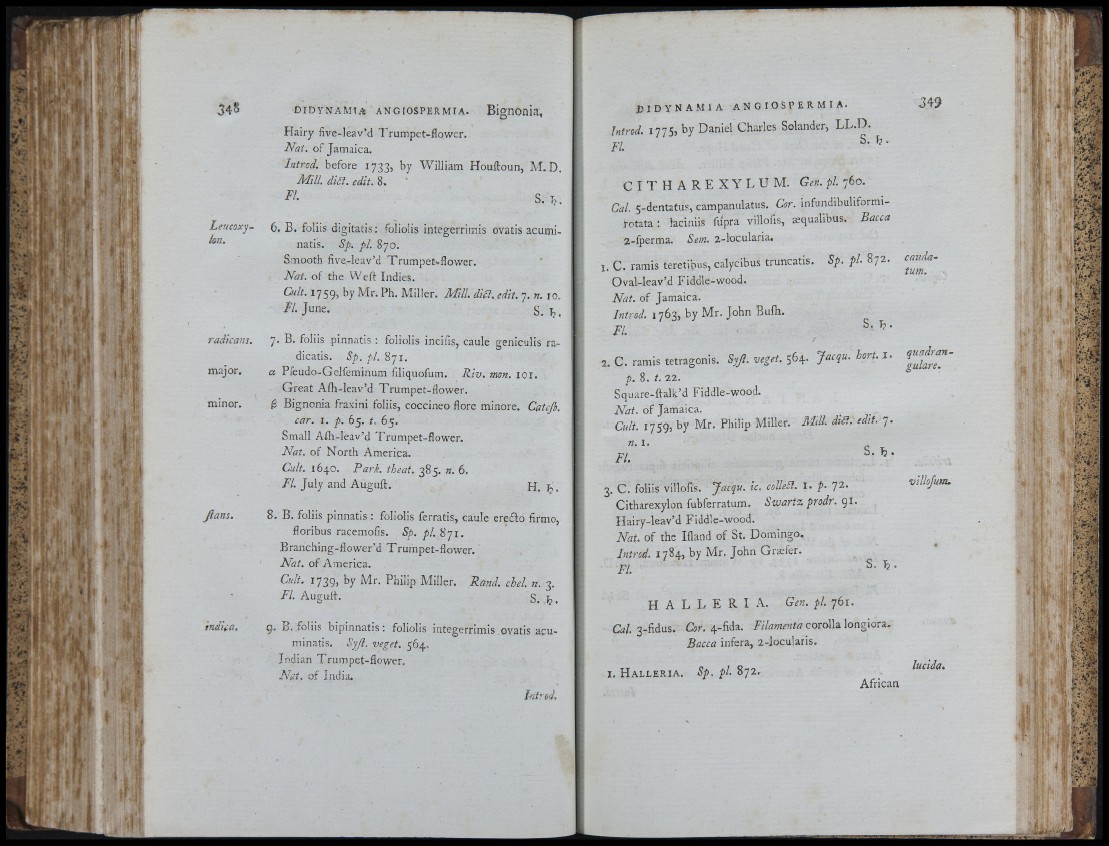 348 DIDYNAMIA ANGIOSPERMIA. Bignonia.
Hairy five-leav'd Trumpet-flower.
Nat. of Jamaica.
Introd. before 1733, by William Houſtoun, M.D.
Mill. dict. edit. 8.
Fl. S. ♄.
Leucoxy-
lon.
6. B. foliis digitatis: foliolis integerrimis ovatis acumi-
natis. Sp. pl. 870.
Smooth five-leav'd Trumpet-flower.
Nat. of the Weſt Indies.
Cult. 1759, by Mr. Ph. Miller. Mill. dict. edit. 7. n. 10.
Fl. June. S. ♄.
radicans. 7. B. foliis pinnatis: foliolis inciſis, caule geniculis ra-
dicatis. Sp. pl. 871.
major. α Pſeudo-Gelſeminum ſiliquoſum. Riv. mon. 101.
Great Aſh-leav'd Trumpet-flower.
minor. β Bignonia fraxini foliis, coccineo flore minore. Cateſb.
car. 1. p. 65. t. 65.
Small Aſh-leav'd Trumpet-flower.
Nat. of North America.
Cult. 1640. Park. theat. 385. n. 6.
Fl. July and Auguſt. H. ♄.
ſtans. 8. B. foliis pinnatis: foliolis ſerratis, caule erecto firmo,
floribus racemoſis. Sp. pl. 871.
Branching-flower'd Trumpet-flower.
Nat. of America.
Cult. 1739, by Mr. Philip Miller. Rand. chel. n. 3.
Fl. Auguſt. S. ♄.
indica. 9. B. foliis bipinnatis: foliolis integerrimis ovatis acu-
minatis. Syſt. veget. 564.
Indian Trumpet-flower.
Nat. of India.
Introd.
DIDYNAMIA ANGIOSPERMIA. 349
Introd. 1775, by Daniel Charles Solander, LL.D.
Fl. S. ♄.
CITHAREXYLUM. Gen. pl. 760.
Cal. 5-dentatus, campanulatus. Cor. infundibuliformi-
rotata: laciniis ſupra villoſis, æqualibus. Bacca
2-ſperma. Sem. 2-locularia.
1. C. ramis teretibus, calycibus truncatis. Sp. pl. 872. cauda-
tum.
Oval-leav'd Fiddle-wood.
Nat. of Jamaica.
Introd. 1763, by Mr. John Buſh.
Fl. S. ♄.
2. C. ramis tetragonis. Syſt. veget. 564. Jacqu. hort. 1. quadran-
gulare.
p. 8. t. 22.
Square-ſtalk'd Fiddle-wood.
Nat. of Jamaica.
Cult. 1759, by Mr. Philip Miller. Mill. dict. edit. 7.
n. 1.
Fl. S. ♄.
3. C. foliis villoſis. Jacqu. ic. collect. 1. p. 72. villoſum.
Citharexylon ſubſerratum. Swartz prodr. 91.
Hairy-leav'd Fiddle-wood.
Nat. of the Iſland of St. Domingo.
Introd. 1784, by Mr. John Græfer.
Fl. S. ♄.
HALLERIA. Gen. pl. 761.
Cal. 3-fidus. Cor. 4-fida. Filamenta corolla longiora.
Bacca infera, 2-locularis.
1. HALLERIA. Sp. pl. 872. lucida.
African